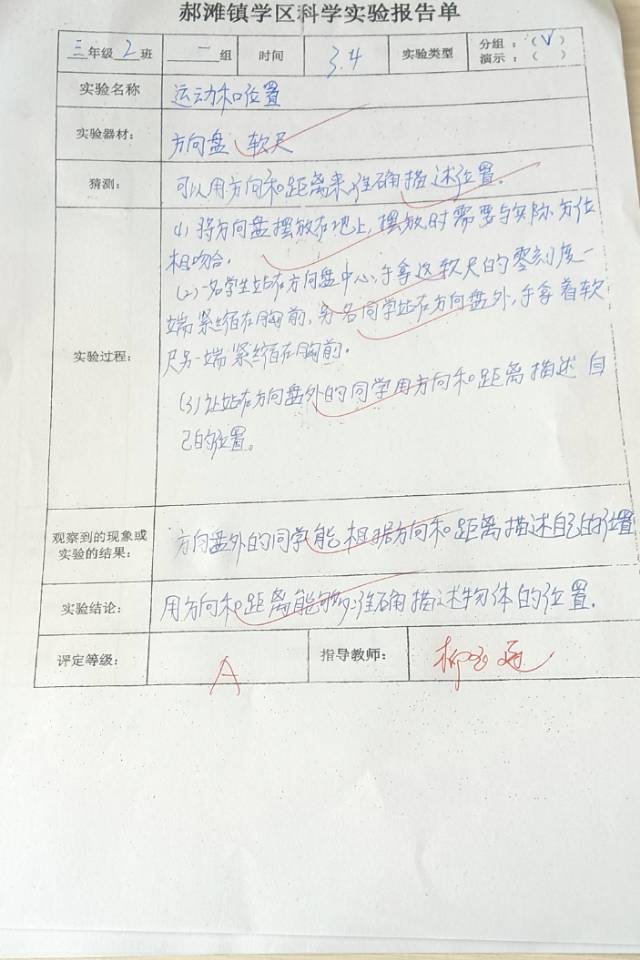 郝滩镇学区科学实验报告单
三年级2班 一组 时间 3.4 实验类型 分组：（√）
演示：（ ）
实验名称 运动和位置
实验器材： 方向盘、软尺
猜测： 可以用方向和距离来准确描述位置。
实验过程：
(1) 将方向盘摆放在地上，摆放时需要与实际方位
相吻合。
(2)一名学生站在方向盘中心，手拿这软尺的零刻度一
端紧缩在胸前，另一名同学站在方向盘外，手拿着软
尺另一端紧缩在胸前。
(3) 让站在方向盘外的同学用方向和距离描述自
己的位置。
观察到的现象或
实验的结果： 方向盘外的同学能根据方向和距离描述自己的位置
实验结论： 用方向和距离能够准确描述物体的位置.
评定等级： A 指导教师： 柳